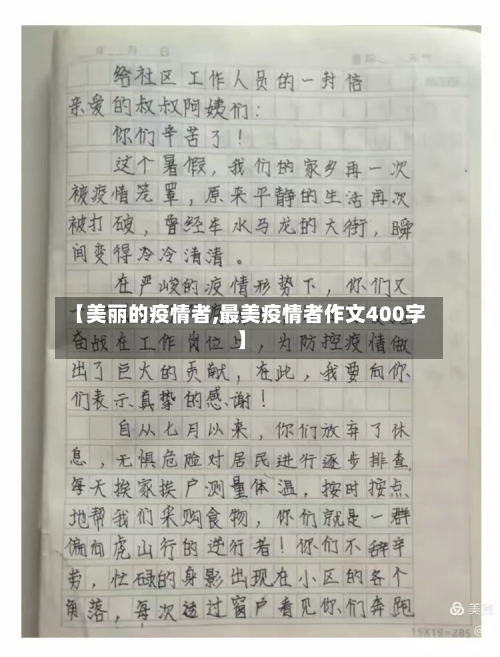 年 月 日
给社区工作人员的一封信
亲爱的叔叔阿姨们：
你们辛苦了！
这个暑假，我们的家乡再一次
被疫情笼罩，原来平静的生活再次
被打破，曾经车水马龙的大街，瞬
间变得冷冷清清。
在严峻的疫情形势下，你们又
【美丽的疫情者,最美疫情者作文400字
】
奋战在工作岗位上，为防控疫情做
出了巨大的贡献，在此，我要向你
们表示真挚的感谢！
自从七月以来，你们放弃了休
息，无惧危险对居民进行逐步排查，
每天挨家挨户测量体温，按时按点
地帮我们采购食物，你们就是一群
偏向虎山行的逆行者！你们不辞辛
劳，忙碌的身影出现在小区的各个
角落，每次透过窗户看见你们奔跑
美
15X19=285